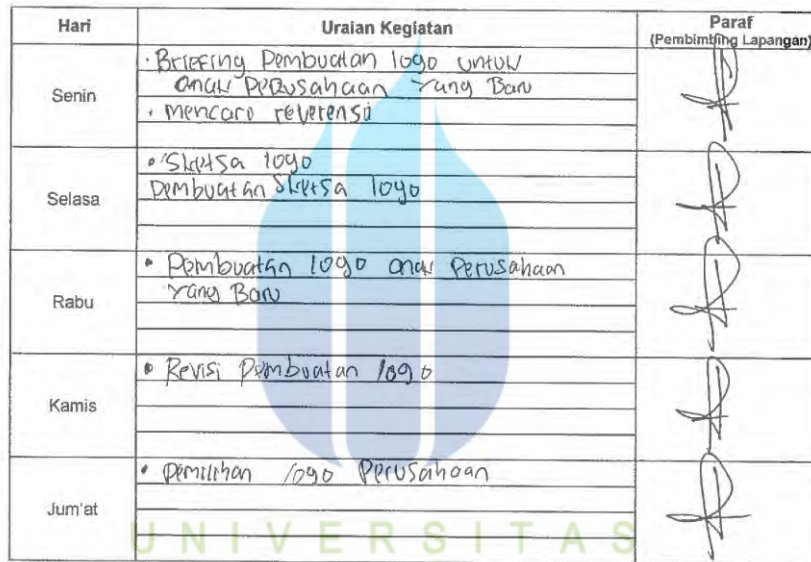 Hari Uraian Kegiatan Paraf
(Pembimbing Lapangan)
Senin
• Briefing Pembuatan logo untuk
anak Perusahaan Yang Baru
• Mencari referensi
Selasa
• Sketsa logo
Pembuatan Sketsa logo
Rabu
• Pembuatan logo anak Perusahaan
Yang Baru
Kamis
• Revisi Pembuatan logo
Jum'at
• Pemilihan logo Perusahaan
UNIVERSITAS